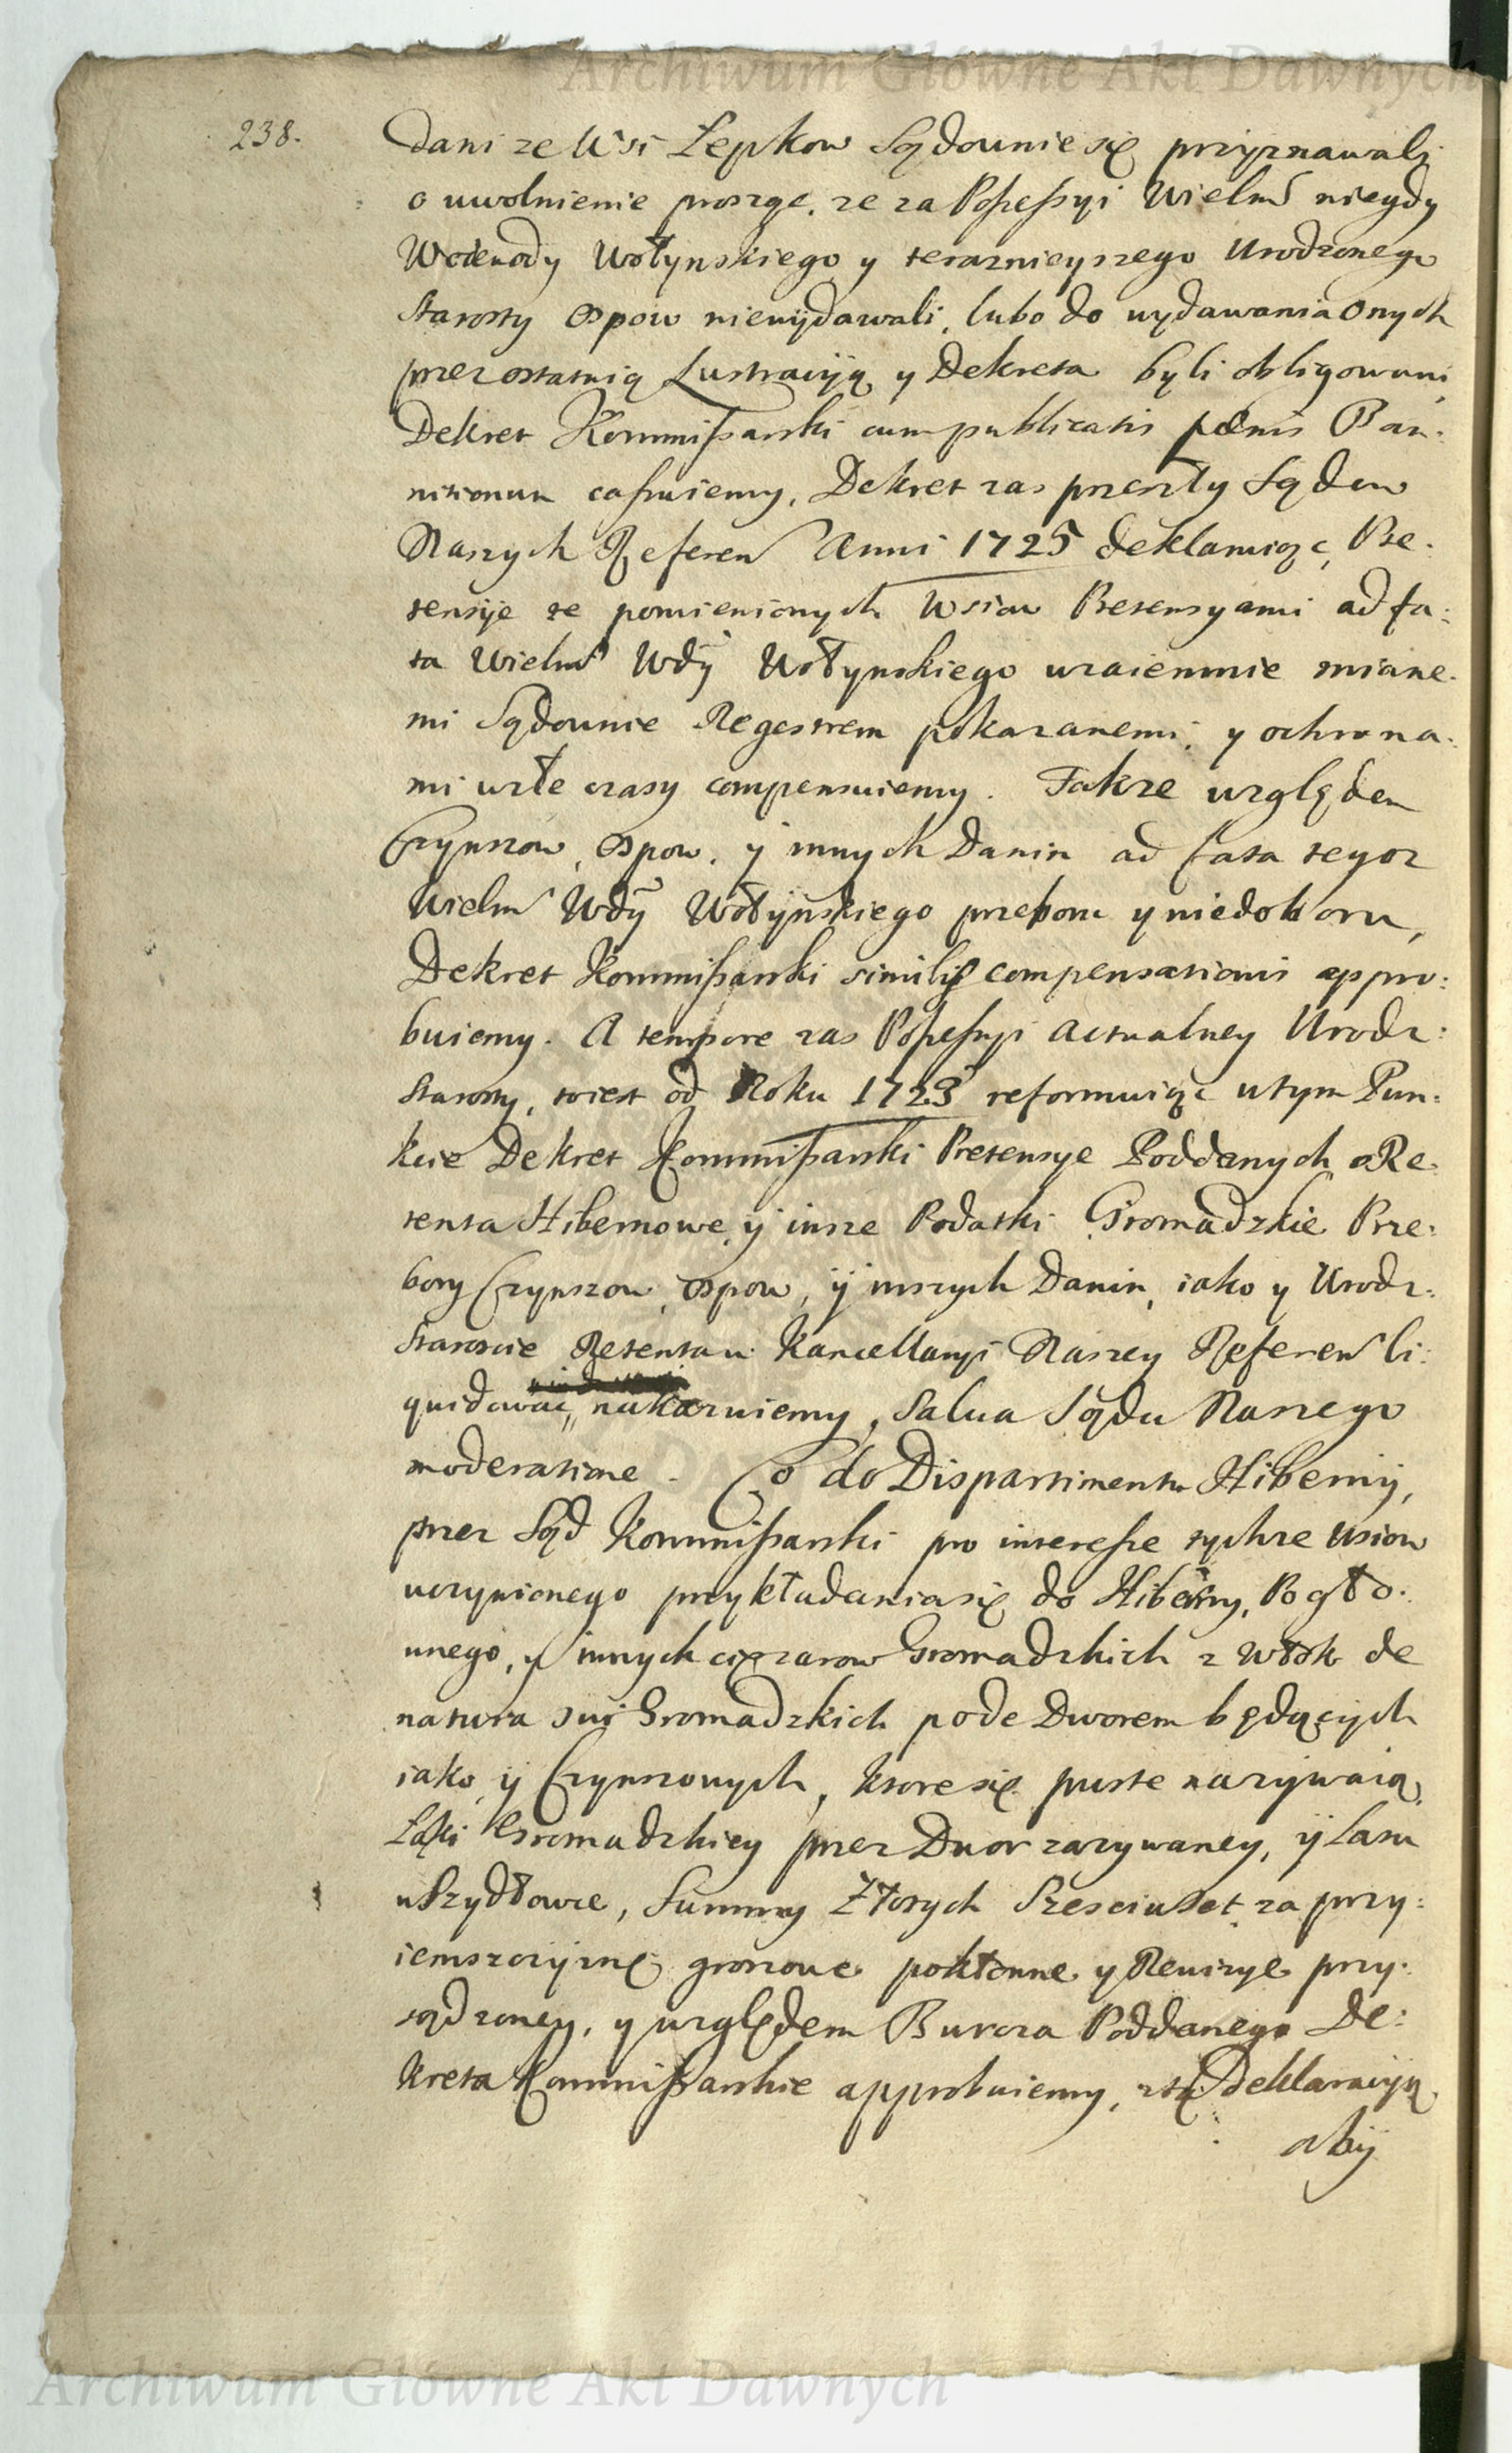 Archiwum Główne Akt Dawnych
238.
dani ze Wsi Łepkow Sądownie się przyznawali
o uwolnienie proszge, ze za Possessyi Wielm niegdy
Woiewody Wołynskiego y teraznieyszego Urodzonego
Starosty Ospow niewydawali, lubo do wydawania Onych
przez ostatnią Lustracyją y Dekreta byli obligowani,
Dekret Kommissarski cum publicatis pænis Ban:
nitionum cassuiemy, Dekret zas przeszły Sądow
Naszych Referen Anni 1725 deklaruiąc, Pre:
tensije te pomienionych Wsiow Pretensyami ad fa:
ta Wielm Wdÿ Wołynskiego wzaiemnie miane:
mi Sądownie Regestrem pokazanemi, y ochrona:
mi wzłe czasy compensuiemy. Takze względem
Czynszow, Ospow, ÿ innych Danin ad fata tegoz
Wielm Wdÿ Wołÿnskiego przeboru y niedoboru,
Dekret Kommissarski similis compensationis appro:
buiemy. A tempore zas Possessyi Actualney Urodz:
Starosty, toiest od Roku 1723 reformuiąc w tym Pun:
kcie Dekret Kommissarski Pretensye Poddanych o Re:
tenta Hibernowe, ÿ insze Podatki Gromadzkie Prze:
bory Czynszow, Ospow, ÿ inszych Danin, iako y Urodz:
Staroscie Retenta w Kancellaryi Naszey Referen li:
quidować, nakazuiemy, Salva Sądu Naszego
moderatione. Co do Dispartimentu Hibernÿ,
przez Sąd Kommissarski pro interesse tychze Wsiow
uczynionego przykładania się do Hiberny, Pogło:
wnego, y innych ciężarow Gromadzkich z Włok de
natura sui Gromadzkich pode Dworem będących
iako ÿ Czynszowych, ktore się puste nazÿwaią,
Łąki Gromadzkiey przez Dwor zazywaney, ÿ Lasu
w Szydłowce, Summy Złotych Szesciuset za przy:
iemszczÿznę groszowe pokłonne y Rewizye przy:
sądzoney, y względem Burcza Poddanego De:
kreta Kommissarskie approbuiemy, ztą Deklaracyją
abÿ
Archiwum Główne Akt Dawnych